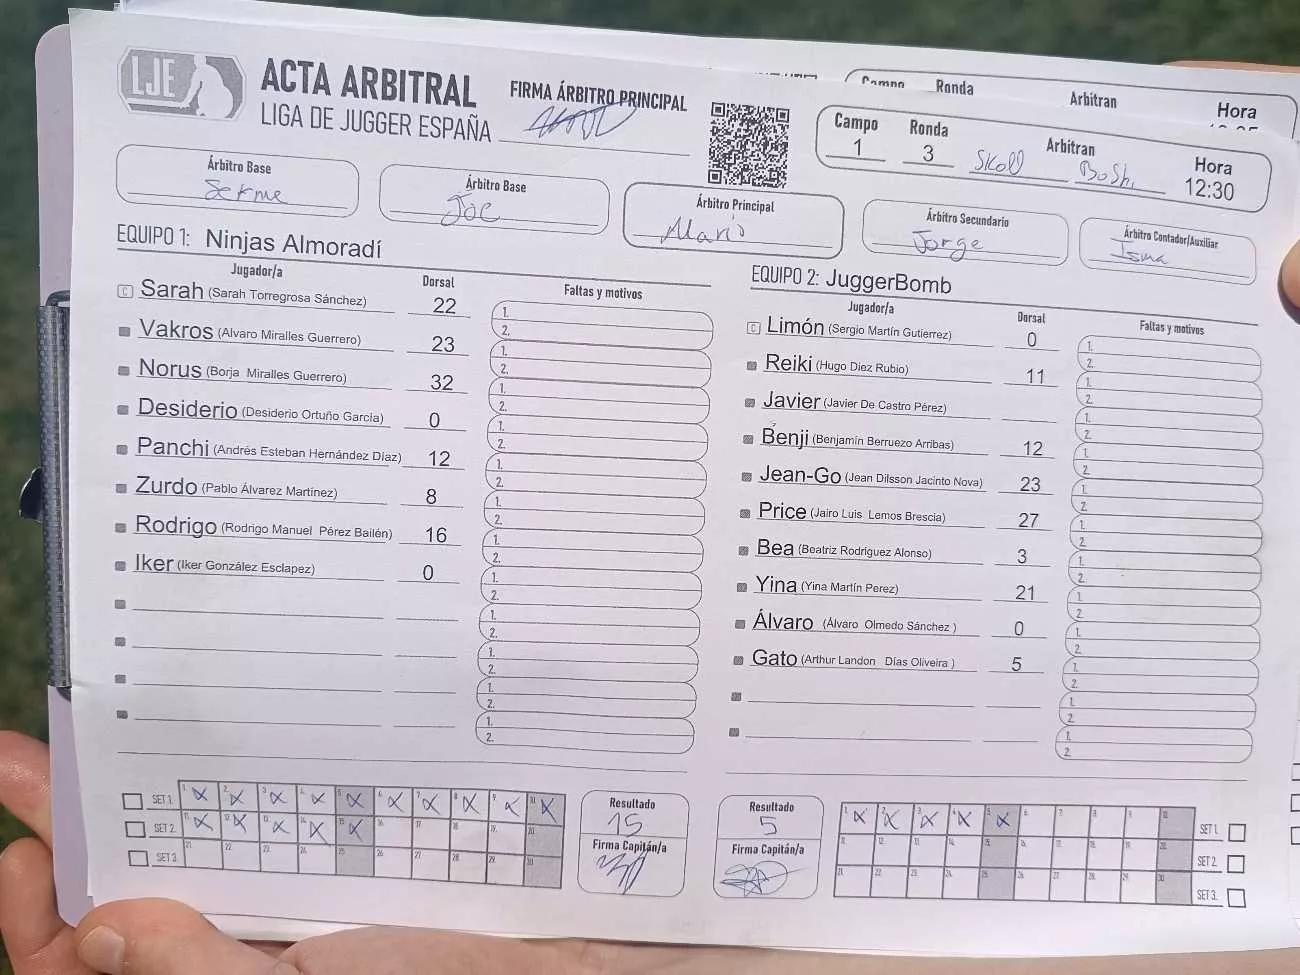 LJE
ACTA ARBITRAL
LIGA DE JUGGER ESPAÑA
FIRMA ÁRBITRO PRINCIPAL
Campo Ronda Arbitran Hora
Campo Ronda Arbitran Hora
1 3 Skoll Boshi 12:30
Árbitro Base
Serme
Árbitro Base
Joe
Árbitro Principal
Mario
Árbitro Secundario
Jorge
Árbitro Contador/Auxiliar
Isma
EQUIPO 1: Ninjas Almoradí
Jugador/a Dorsal Faltas y motivos
C Sarah (Sarah Torregrosa Sánchez) 22 1. 2.
Vakros (Alvaro Miralles Guerrero) 23 1. 2.
Norus (Borja Miralles Guerrero) 32 1. 2.
Desiderio (Desiderio Ortuño García) 0 1. 2.
Panchi (Andrés Esteban Hernández Díaz) 12 1. 2.
Zurdo (Pablo Álvarez Martínez) 8 1. 2.
Rodrigo (Rodrigo Manuel Pérez Bailén) 16 1. 2.
Iker (Iker González Esclapez) 0 1. 2.
1. 2.
1. 2.
1. 2.
1. 2.
EQUIPO 2: JuggerBomb
Jugador/a Dorsal Faltas y motivos
C Limón (Sergio Martín Gutierrez) 0 1. 2.
Reiki (Hugo Diez Rubio) 11 1. 2.
Javier (Javier De Castro Pérez) 1. 2.
Benji (Benjamín Berruezo Arribas) 12 1. 2.
Jean-Go (Jean Dilsson Jacinto Nova) 23 1. 2.
Price (Jairo Luis Lemos Brescia) 27 1. 2.
Bea (Beatriz Rodríguez Alonso) 3 1. 2.
Yina (Yina Martín Perez) 21 1. 2.
Álvaro (Álvaro Olmedo Sánchez ) 0 1. 2.
Gato (Arthur Landon Días Oliveira ) 5 1. 2.
1. 2.
1. 2.
SET 1. 1. X 2. X 3. X 4. X 5. X 6. X 7. X 8. X 9. X 10. X
SET 2. 11. X 12. X 13. X 14. X 15. X 16. 17. 18. 19. 20.
SET 3. 21 22 23 24 25 26 27 28 29 30
Resultado
15
Firma Capitán/a
Resultado
5
Firma Capitán/a
1. X 2. X 3. X 4. X 5. X 6 7 8 9 10. SET 1.
11. 12. 13. 14. 15. 16. 17. 18. 19. 20. SET 2.
21 22 23 24 25 26 27 28 29 30 SET 3.